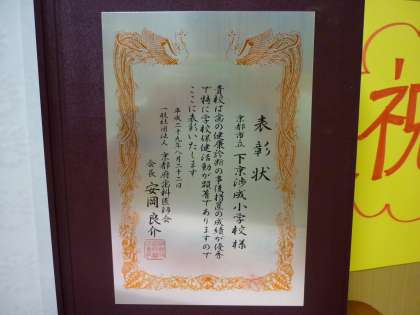 表彰状
京都市立 下京渉成小学校様
貴校は歯の健康診断の事後措置の成績が優秀
で特に学校保健活動が顕著でありますので
ここに表彰いたします
平成二十九年八月二十二日
一般社団法人 京都府歯科医師会
会長 安岡良介
祝